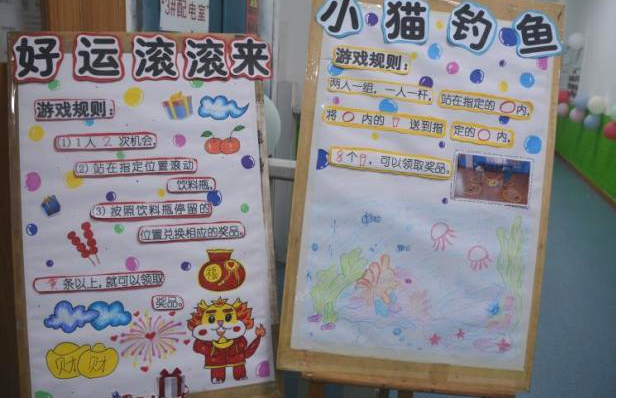 配电室
好运滚滚来
游戏规则:
1) 1人2次机会,
2) 站在指定位置滚动
饮料瓶,
3) 按照饮料瓶停留的
位置兑换相应的奖品。
条以上,就可以领取
奖品。
福
财 财
小猫钓鱼
游戏规则:
两人一组,一人一杆,站在指定的○内,
将○内的 送到指定的○内,
8个 ,可以领取奖品。